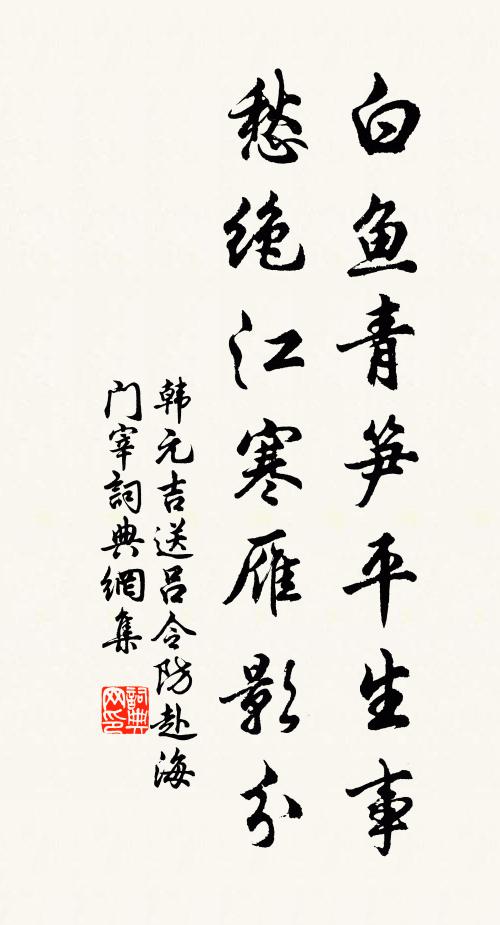 白鱼青笋平生事
愁绝江寒雁影分
韩元吉送吕令防赴海
门宰词典網集
詞典网印